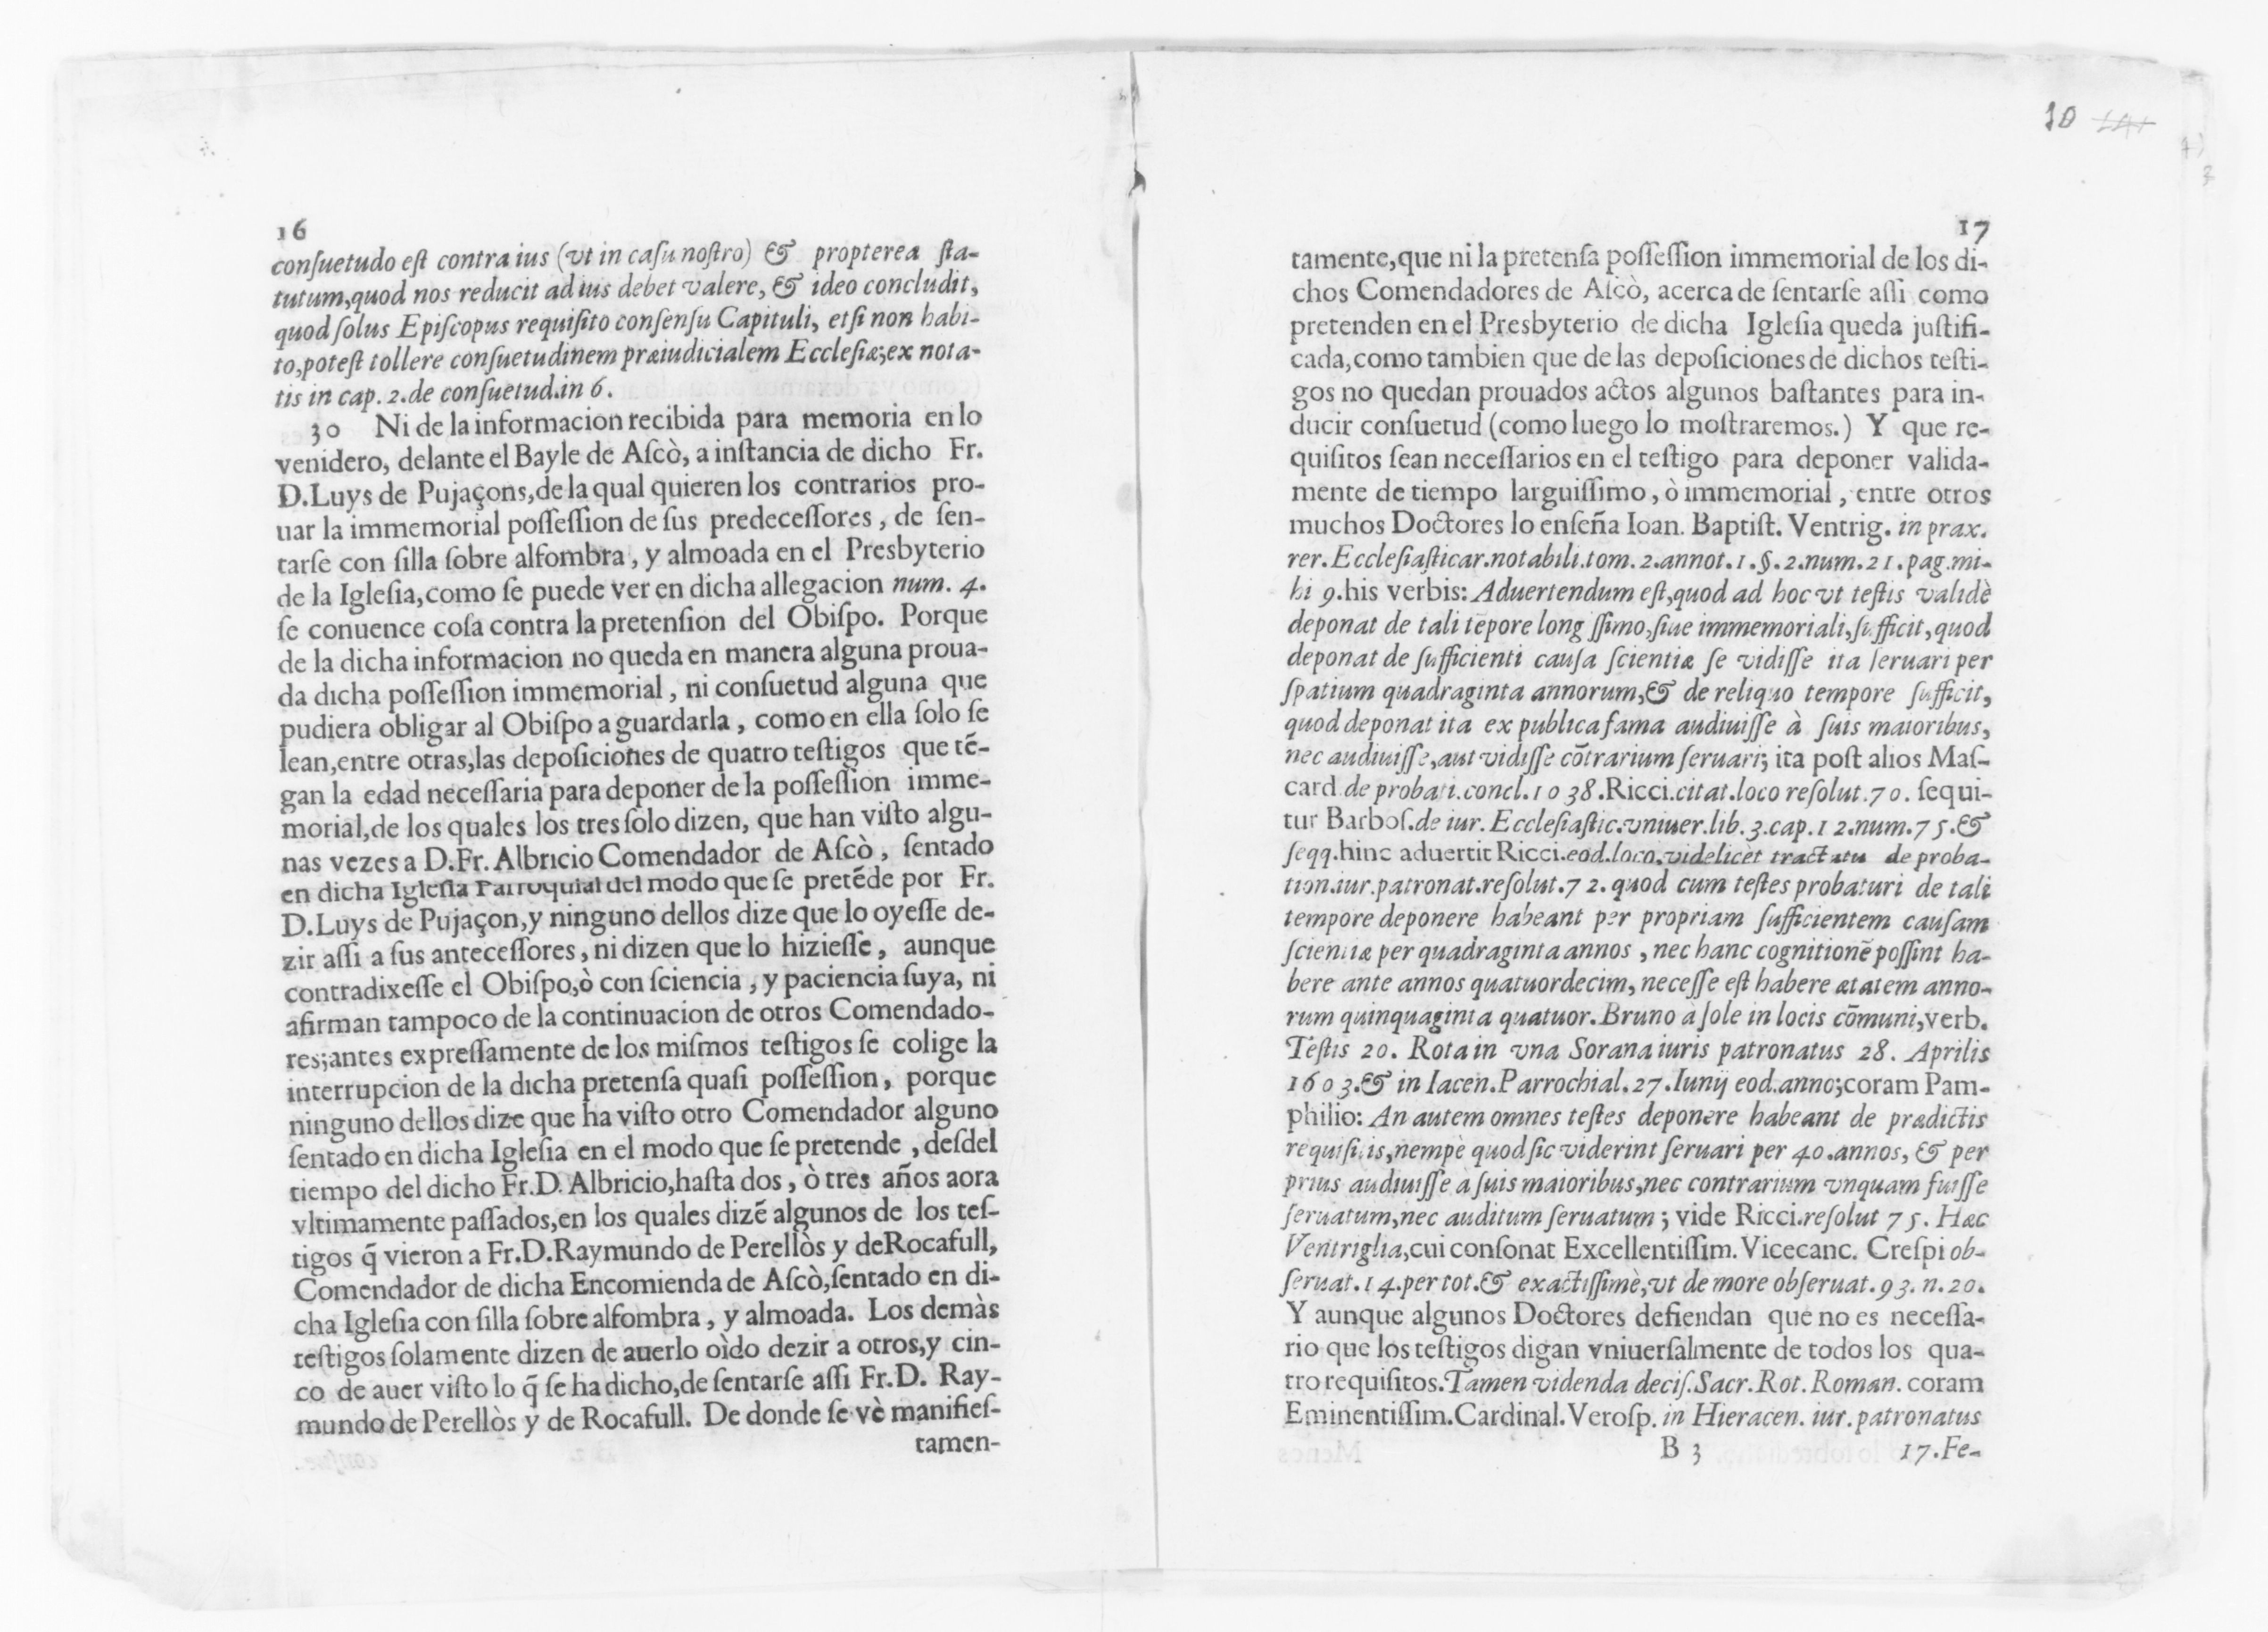 16
conſuetudo eſt contra ius (vt in caſu noſtro) & propterea ſta-
tutum,quod nos reducit ad ius debet valere, & ideo concludit,
quod ſolus Epiſcopus requiſito conſenſu Capituli, etſi non habi-
to,poteſt tollere conſuetudinem præiudicialem Eccleſiæ;ex nota-
tis in cap. 2.de conſuetud.in 6.
30 Ni de la informacion recibida para memoria en lo
venidero, delante el Bayle de Aſcò, a inſtancia de dicho Fr.
D.Luys de Pujaçons,de la qual quieren los contrarios pro-
uar la immemorial poſſeſſion de ſus predeceſſores, de ſen-
tarſe con ſilla ſobre alfombra, y almoada en el Presbyterio
de la Igleſia,como ſe puede ver en dicha allegacion num. 4.
ſe conuence coſa contra la pretenſion del Obiſpo. Porque
de la dicha informacion no queda en manera alguna proua-
da dicha poſſeſſion immemorial, ni conſuetud alguna que
pudiera obligar al Obiſpo a guardarla, como en ella ſolo ſe
lean,entre otras,las depoſiciones de quatro teſtigos que tẽ-
gan la edad neceſſaria para deponer de la poſſeſſion imme-
morial,de los quales los tres ſolo dizen, que han viſto algu-
nas vezes a D.Fr. Albricio Comendador de Aſcò, ſentado
en dicha Igleſia Parroquial del modo que ſe pretẽde por Fr.
D.Luys de Pujaçon,y ninguno dellos dize que lo oyeſſe de-
zir aſſi a ſus anteceſſores, ni dizen que lo hizieſſe, aunque
contradixeſſe el Obiſpo,ò con ſciencia, y paciencia ſuya, ni
afirman tampoco de la continuacion de otros Comendado-
res;antes expreſſamente de los miſmos teſtigos ſe colige la
interrupcion de la dicha pretenſa quaſi poſſeſſion, porque
ninguno dellos dize que ha viſto otro Comendador alguno
ſentado en dicha Igleſia en el modo que ſe pretende, deſdel
tiempo del dicho Fr.D. Albricio,haſta dos, ò tres años aora
vltimamente paſſados,en los quales dizẽ algunos de los teſ-
tigos q̃ vieron a Fr.D.Raymundo de Perellòs y deRocafull,
Comendador de dicha Encomienda de Aſcò,ſentado en di-
cha Igleſia con ſilla ſobre alfombra, y almoada. Los demàs
teſtigos ſolamente dizen de auerlo oìdo dezir a otros,y cin-
co de auer viſto lo q̃ ſe ha dicho,de ſentarſe aſſi Fr.D. Ray-
mundo de Perellòs y de Rocafull. De donde ſe vè manifieſ-
tamen-
10 141
17
tamente,que ni la pretenſa poſſeſſion immemorial de los di-
chos Comendadores de Aſcò, acerca de ſentarſe aſſi como
pretenden en el Presbyterio de dicha Igleſia queda juſtifi-
cada,como tambien que de las depoſiciones de dichos teſti-
gos no quedan prouados actos algunos baſtantes para in-
ducir conſuetud (como luego lo moſtraremos.) Y que re-
quiſitos ſean neceſſarios en el teſtigo para deponer valida-
mente de tiempo larguiſſimo, ò immemorial, entre otros
muchos Doctores lo enſeña Ioan. Baptiſt. Ventrig. in prax.
rer. Eccleſiaſticar.notabili.tom. 2.annot.1.§.2.num.21.pag.mi-
hi 9.his verbis: Aduertendum eſt,quod ad hoc vt teſtis validè
deponat de tali tẽpore long ſſimo,ſiue immemoriali,ſufficit,quod
deponat de ſufficienti cauſa ſcientiæ ſe vidiſſe ita ſeruari per
ſpatium quadraginta annorum,& de reliquo tempore ſufficit,
quod deponat ita ex publica fama audiuiſſe à ſuis maioribus,
nec audiuiſſe,aut vidiſſe cõtrarium ſeruari; ita poſt alios Maſ-
card de probati.concl.1038.Ricci.citat.loco reſolut.70. ſequi-
tur Barboſ.de iur. Eccleſiaſtic.vniuer.lib.3.cap.12.num.75.&
ſeqq.hinc aduertit Ricci.eod.loco,videlicèt tractatu de proba-
tion.iur.patronat.reſolut.72.quod cum teſtes probaturi de tali
tempore deponere habeant per propriam ſufficientem cauſam
ſcientiæ per quadraginta annos, nec hanc cognitionẽ poſſint ha-
bere ante annos quatuordecim, neceſſe eſt habere ætatem anno-
rum quinquaginta quatuor. Bruno à ſole in locis cõmuni,verb.
Teſtis 20. Rota in vna Sorana iuris patronatus 28. Aprilis
1603.& in Iacen.Parrochial.27.Iunij eod.anno;coram Pam-
philio: An autem omnes teſtes deponere habeant de prædictis
requiſitis,nempè quod ſic viderint ſeruari per 40.annos, & per
prius audiuiſſe à ſuis maioribus,nec contrarium vnquam fuiſſe
ſeruatum,nec auditum ſeruatum; vide Ricci.reſolut 75. Hæc
Ventriglia,cui conſonat Excellentiſſim. Vicecanc. Creſpi ob-
ſeruat.14.per tot.& exactiſſimè,vt de more obſeruat.93.n.20.
Y aunque algunos Doctores defiendan que no es neceſſa-
rio que los teſtigos digan vniuerſalmente de todos los qua-
tro requiſitos.Tamen videnda deciſ.Sacr.Rot.Roman. coram
Eminentiſſim.Cardinal.Veroſp. in Hieracen. iur. patronatus
B 3 17.Fe-